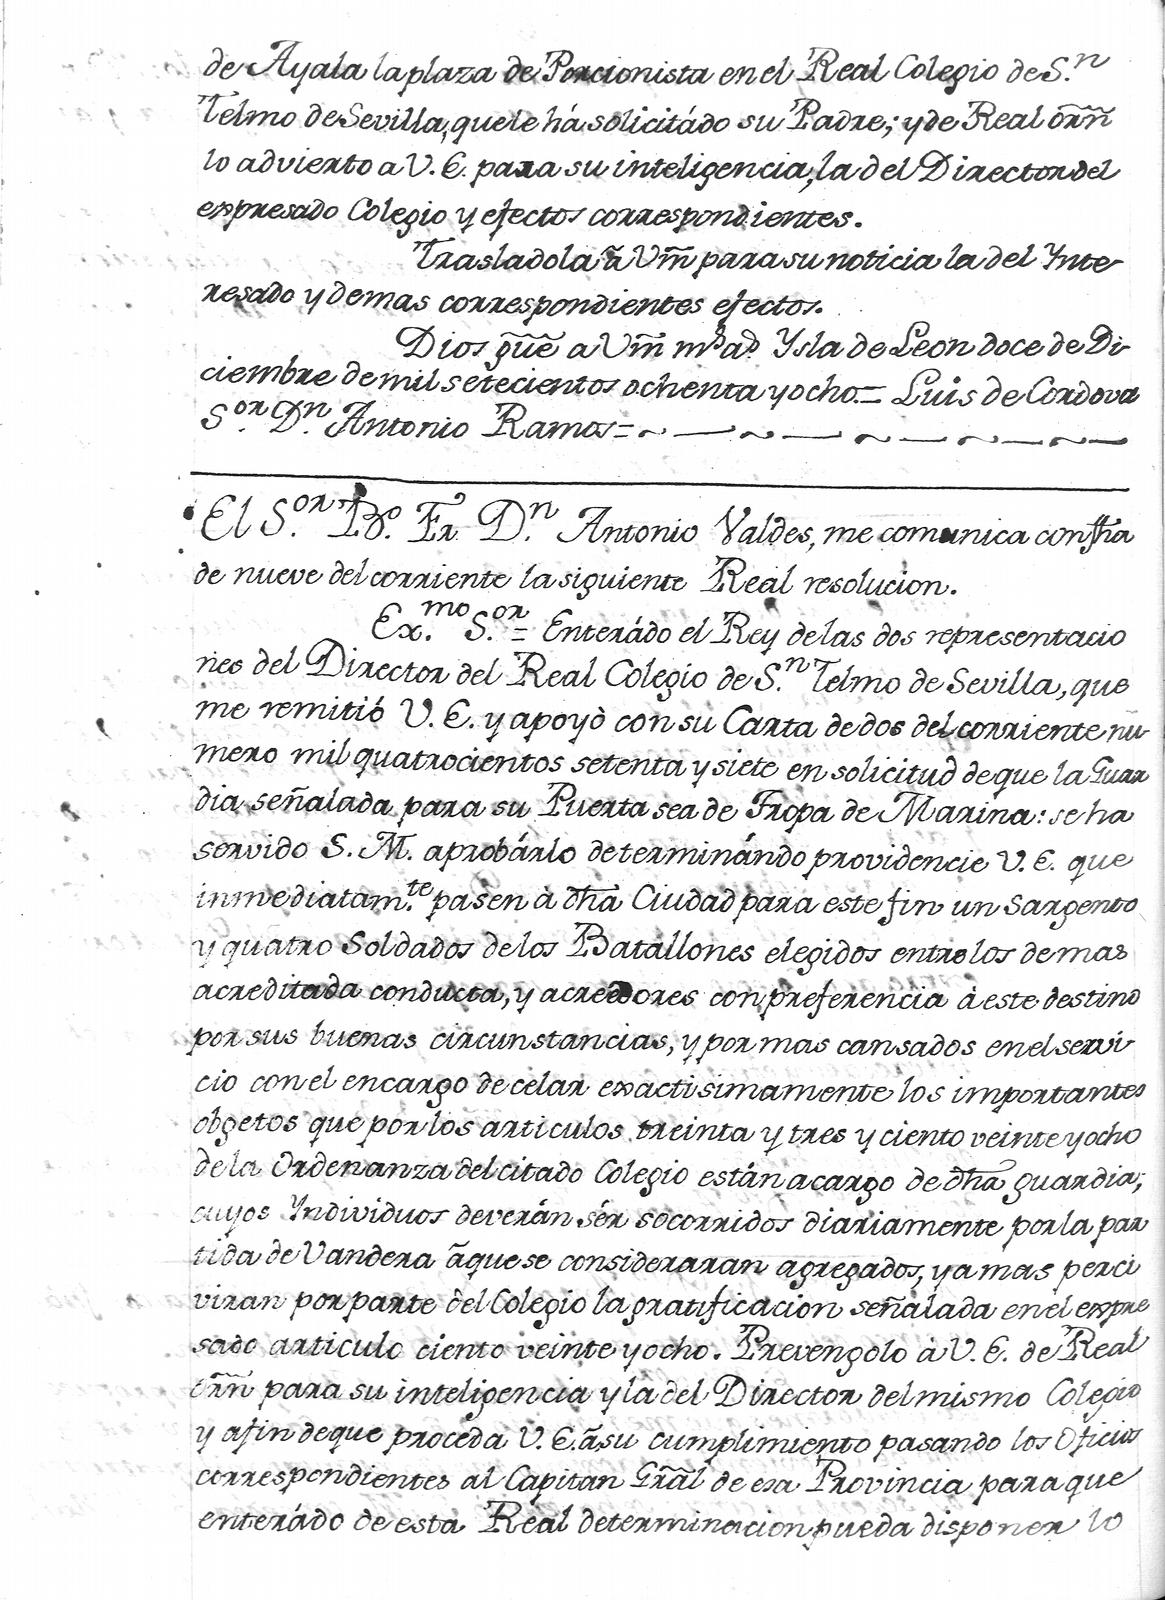 de Ayala la plaza de Porcionista en el Real Colegio de S.n
Telmo de Sevilla, que le há solicitádo su Padre; y de Real orñ
lo advierto a V. E. para su inteligencia, la del Director del
expresado Colegio y efectos correspondientes.
Trasladola ã Vm̃ para su noticia la del Ynte-
resado y demas correspondientes efectos.
Dios gũe a Vm̃ m.s a.s Ysla de Leon doce de Di-
ciembre de mil setecientos ochenta y ocho = Luis de Cordova
S.or D.n Antonio Ramos =
El S.or B.o Fr. D.n Antonio Valdes, me comunica con fha
de nueve del corriente la siguiente Real resolucion.
Ex.mo S.or = Enterádo el Rey de las dos representacio
nes del Director del Real Colegio de S.n Telmo de Sevilla, que
me remitió V. E. y apoyò con su Carta de dos del corriente nu-
mero mil quatrocientos setenta y siete en solicitud de que la Guar
dia señalada para su Puerta sea de Tropa de Marina: se ha
servido S. M. aprobárlo determinándo providencie V. E. que
inmediatam.te pasen à dha Ciudad para este fin un Sargento
y quatro Soldados de los Batallones elegidos entre los de mas
acreditada conducta, y acreedores con preferencia à este destino
por sus buenas circunstancias, y por mas cansados en el servi-
cio con el encargo de celar exactisimamente los importantes
obgetos que por los articulos treinta y tres y ciento veinte y ocho
de la Ordenanza del citado Colegio están a cargo de dha guardia;
cuyos Yndividuos deverán sér socorridos diariamente por la par
tida de Vandera ã que se consideraran agregados, y a mas perci
viran por parte del Colegio la gratificacion señalada en el expre
sado articulo ciento veinte y ocho. Prevengolo à V. E. de Real
orñ para su inteligencia y la del Director del mismo Colegio
y afin de que proceda V. E. ã su cumplimiento pasando los Oficios
correspondientes al Capitan Grãl de esa Provincia para que
enterádo de esta Real determinacion pueda disponer lo